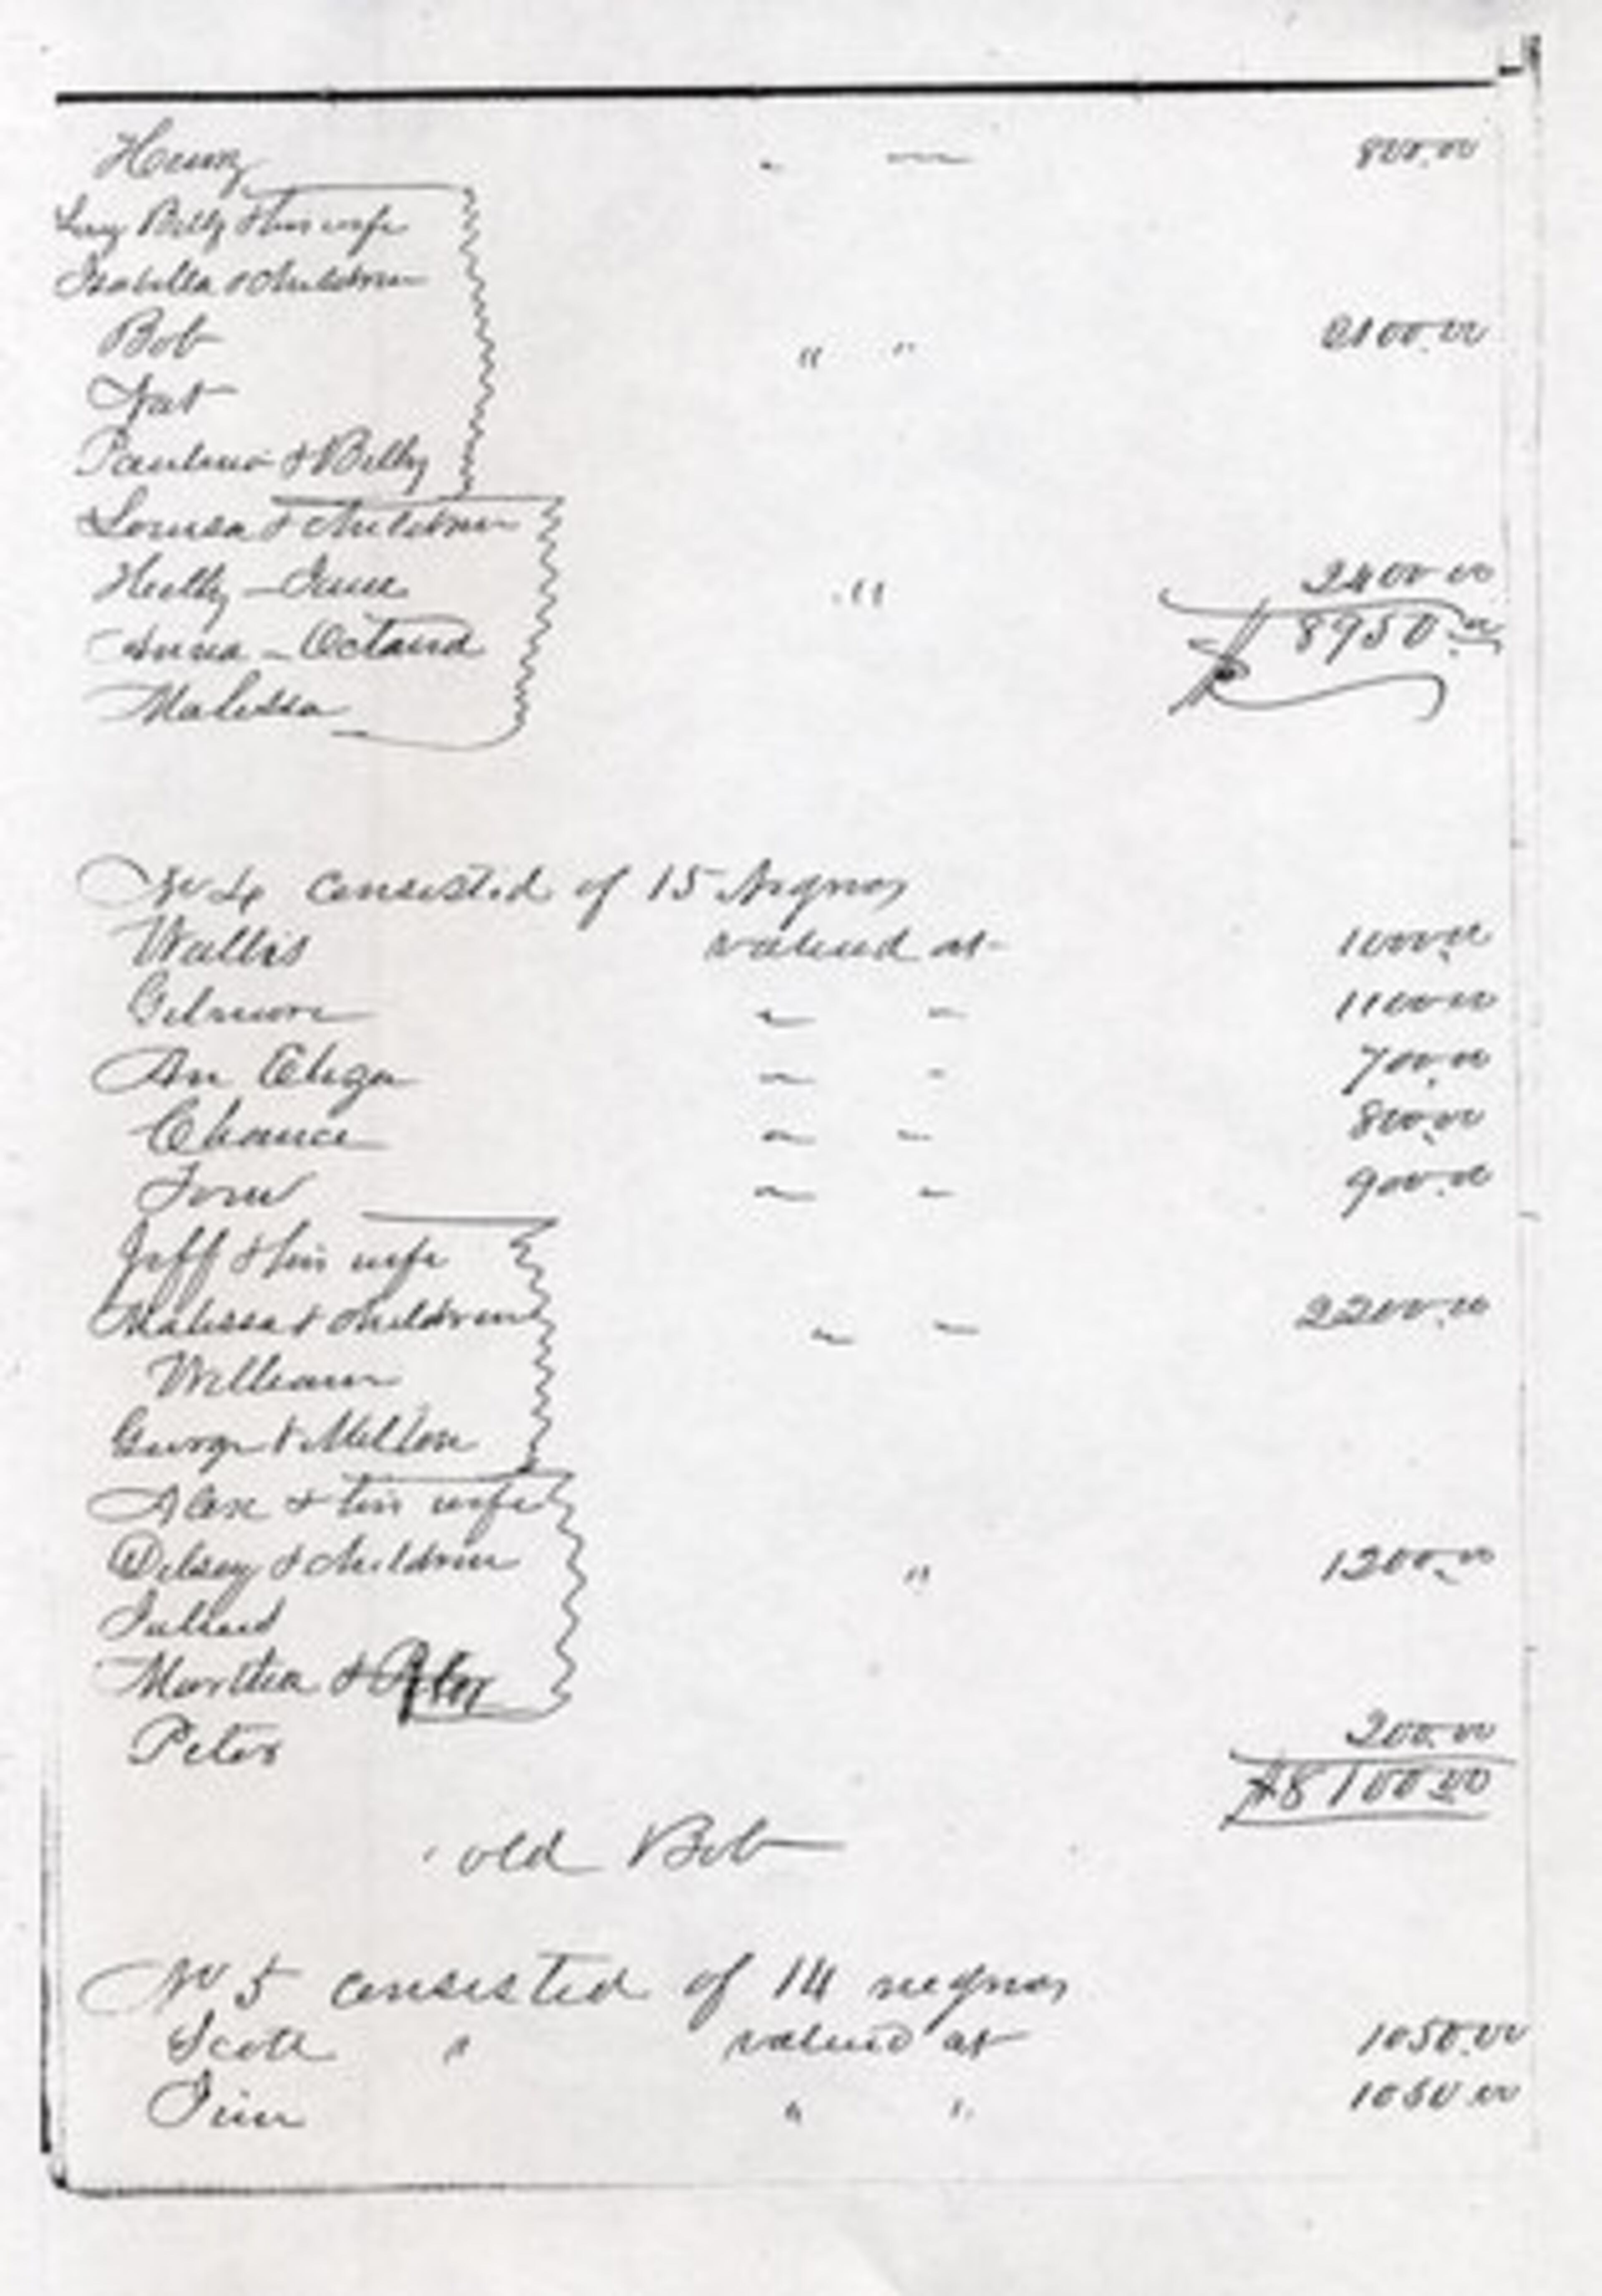 Henry " " 800.00
Billy & his wife
Isabella & Children
Bob " " 2100.00
Nat
Paulino & Billy
Louisa & Children
Hetty – Jane " 2400.00
$8950.00
Anna – Octavia
Malissa
No 4 consisted of 15 Negroes
Wallis valued at 1000.00
Gilmore " " 1100.00
An Eliza " " 700.00
Chance " " 800.00
Tom " " 900.00
Jeff & his wife
Malissa & Children " " 2200.00
William
George & Milton
Alex & his wife
Delsey & Children " 1200.00
Martha &
Peter 200.00
$8100.00
old Bob
No 5 consisted of 14 negroes
Scott " valued at 1050.00
Jim " " 1050.00